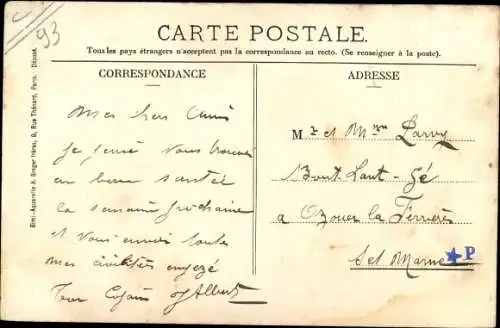 93
CARTE POSTALE.
Tous les pays étrangers n'acceptent pas la correspondance au recto. (Se renseigner à la poste).
CORRESPONDANCE
ADRESSE
Simi-Aquarelle A. Breger frères, 9, Rue Thénard, Paris. Déposé.
Mes chers Amis
Je pense vous trouver
en bonne santée
la semaine prochaine
et vous envoi toute
mes civilités
Albert
Mr et Mme Larvy
à Ozouer la Ferrières
S et Marne
P